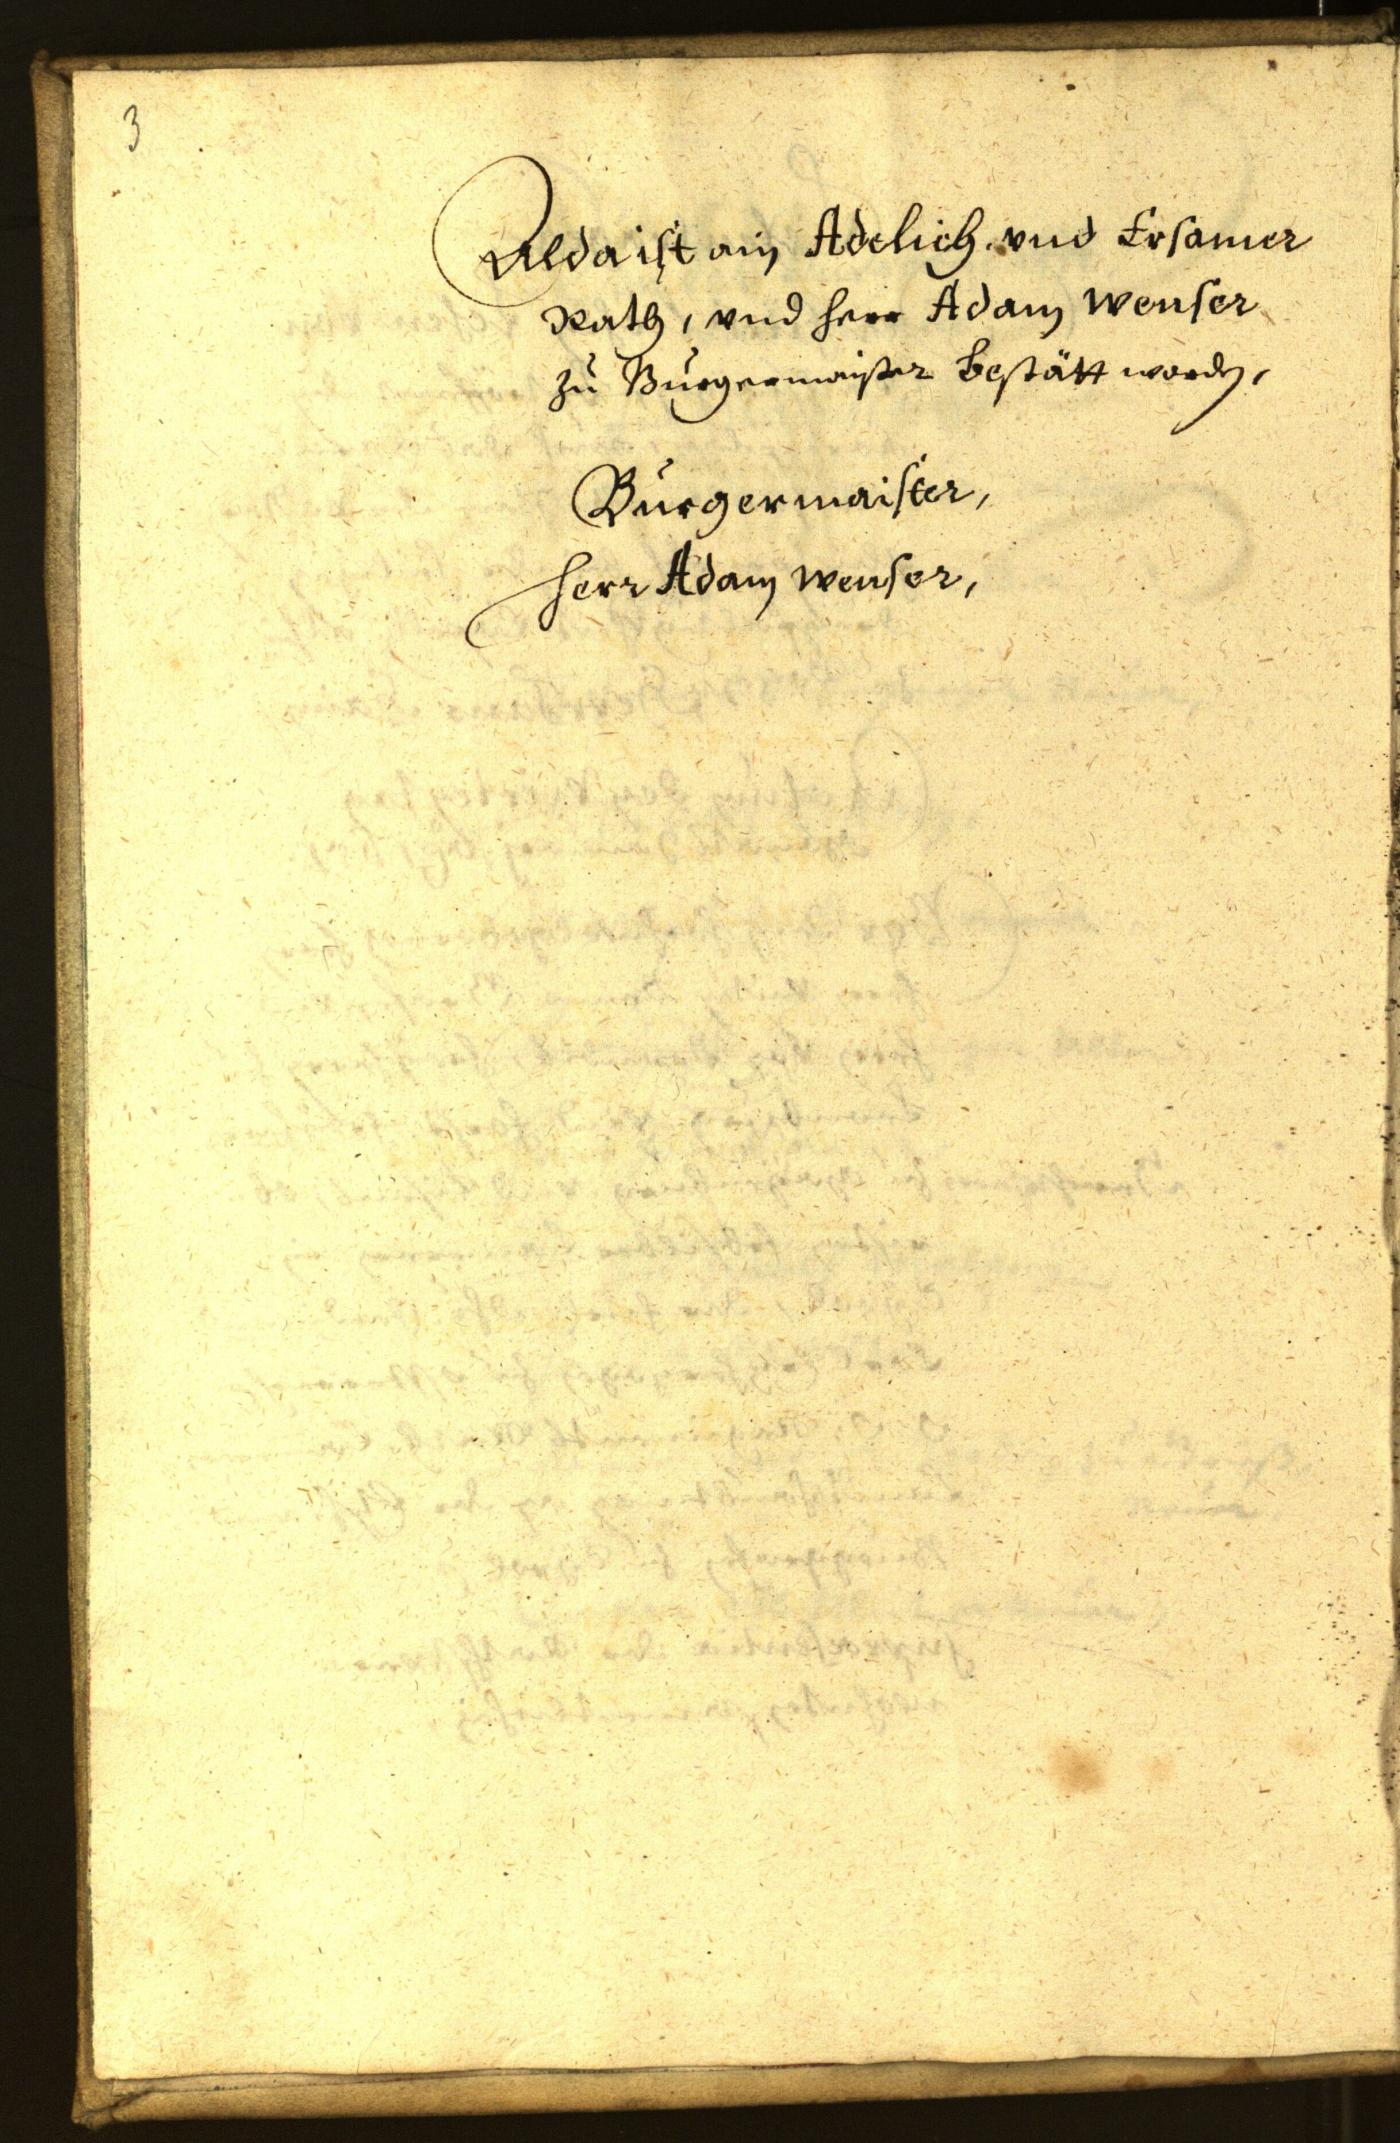 3
Alda ist ain Adelich. vnd Ersamer
Rath, vnd herr Adam Wenser
zu Burgermaister bestätt worden,
Burgermaister,
Herr Adam Wenser,